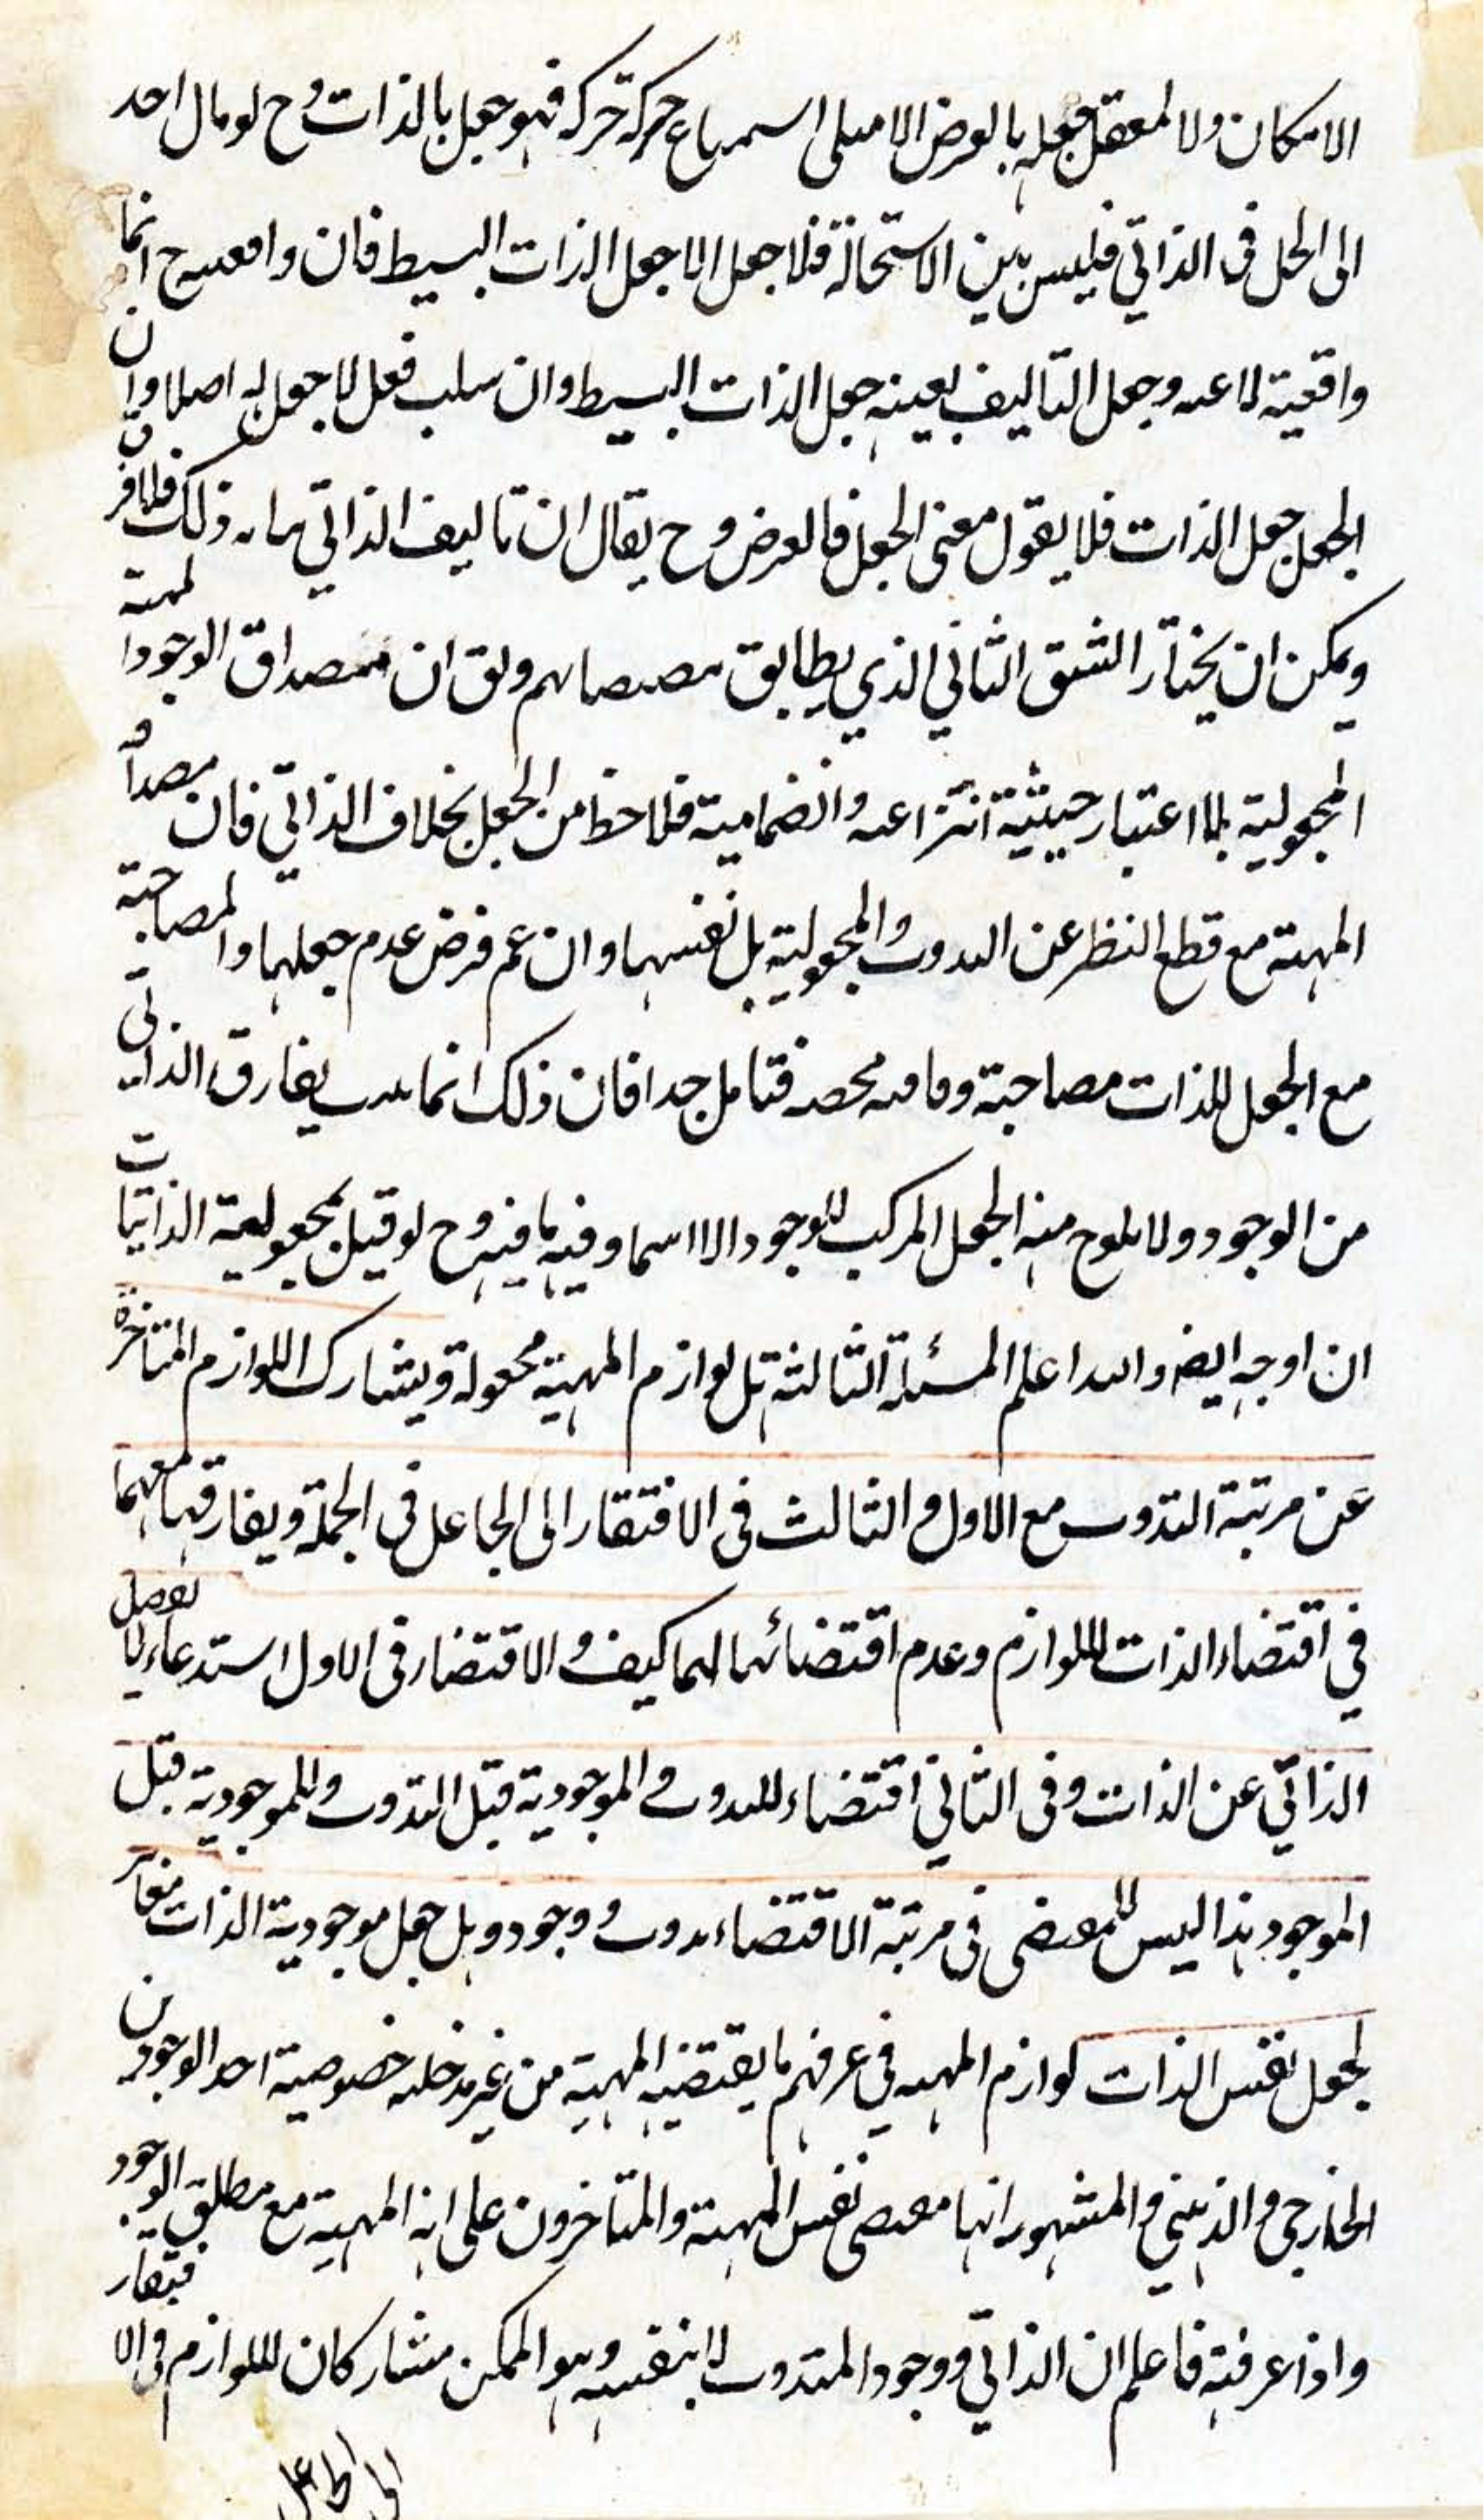 الامكان ولا لمعقل جعله بالعرض الا حركة حركه فهو جعل بالذات وح لو مال احد
الى الحل فى الذاتي فليس بين الاستحالة فلا جعل الا جعل الذات البسيط فان ح انما
واقعية وجعل التاليف بعينه جعل الذات البسيط وان سلب فعل لا جعل له اصلا وان
الجعل جعل الذات فلا يقول معنى الجعل فالعرض وح يقال ان تاليف الذاتي ذلك فلا فرق
ويمكن ان يختار الشق الثاني الذي يطابق ويق ان مصداق الوجود المهية
المجعولية بلا اعتبار حيثية انتزاعيه وانضمامية فلا حظ من الجعل بخلاف الذاتي فان مصداقه
المهية مع قطع النظر عن والمجعولية بل نفسها وان عم فرض عدم جعلها والمصاحبة
مع الجعل للذات مصاحبة فتامل جدا فان ذلك انما يفارق الذاتي
من الوجود ولا يلوح منه الجعل المركب للوجود الا اسما وفيه ما فيه وح لو قيل بمجعولية الذاتيات
ان اوجه ايضا والله اعلم المسئلة الثالثة بل لوازم المهية مجعولة ويشارك اللوازم المتاخرة
عن مرتبة التذوت مع الاول والثالث فى الافتقار الى الجاعل فى الجملة ويفارقها معهما
في اقتضاء الذات للوازم وعدم اقتضائها لهما كيف والاقتضاء فى الاول استدعاء لانفصال
الذاتي عن الذات وفى الثاني اقتضاء للتذوت والموجودية قبل التذوت والموجودية قبل
الموجود هذا ليس للمقتضى فى مرتبة الاقتضاء تذوت ووجود وبل جعل موجودية الذات مغاير
لجعل نفس الذات لوازم المهية في عرفهم ما يقتضيه المهية من غير مدخلية خصوصية احد الوجودين
الخارجي والذهني والمشهور انها مقتضى نفس المهية والمتاخرون على انه المهية مع مطلق الوجود
واذا عرفته فاعلم ان الذاتي ووجود المتذوت لا بنفسه وهو الممكن مشاركان للوازم فى الافتقار
الى الجاعل